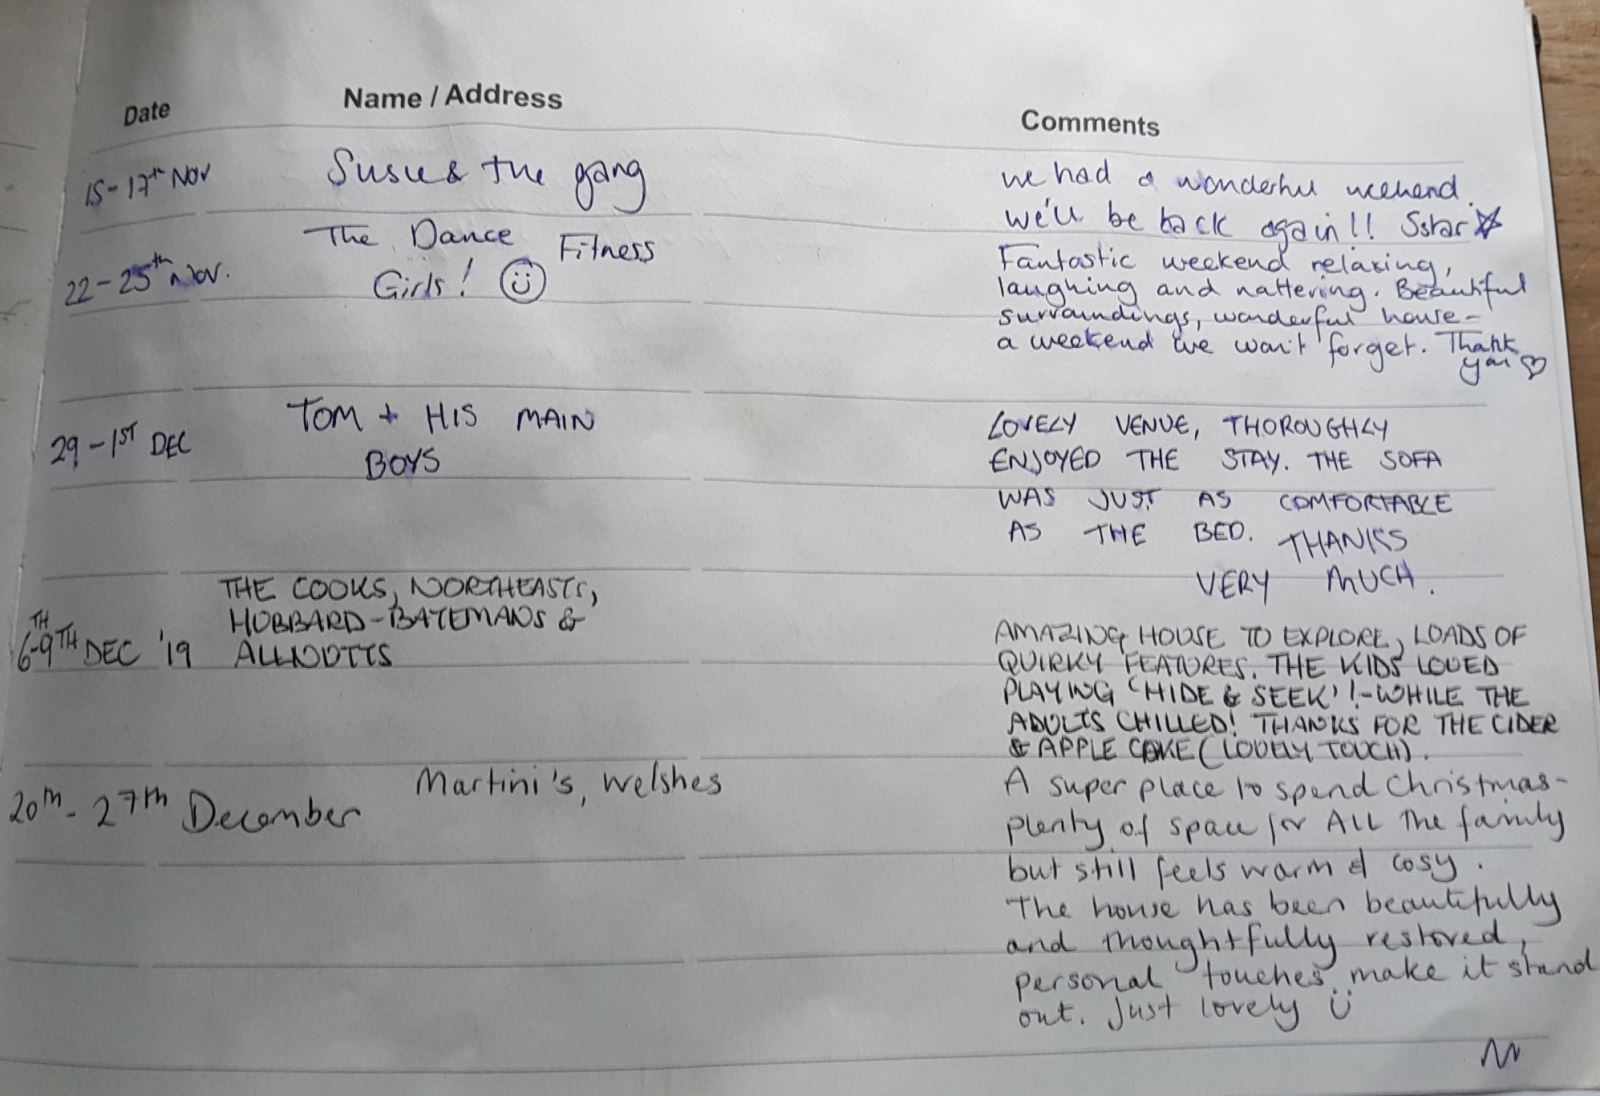 Date Name / Address Comments
15-17th Nov Susie & the gang we had a wonderful weekend.
we'll be back again!! 5star
22-25th Nov. The Dance Fitness
Girls!
Fantastic weekend relaxing,
laughing and nattering. Beautiful
surroundings, wonderful house -
a weekend we won't forget. Thank
you
29-1ST DEC TOM + HIS MAIN
BOYS
LOVELY VENUE, THOROUGHLY
ENJOYED THE STAY. THE SOFA
WAS JUST AS COMFORTABLE
AS THE BED. THANKS
VERY MUCH.
6TH-9TH DEC '19 THE COOKS, NORTHEASTS,
HUBBARD-BATEMANS &
ALLNUTTS
AMAZING HOUSE TO EXPLORE, LOADS OF
QUIRKY FEATURES. THE KIDS LOVED
PLAYING 'HIDE & SEEK'! - WHILE THE
ADULTS CHILLED! THANKS FOR THE CIDER
& APPLE CAKE (LOVELY TOUCH).
20th - 27th December Martini's, Welshes
A super place to spend Christmas -
plenty of space for ALL the family
but still feels warm & cosy.
The house has been beautifully
and thoughtfully restored,
personal touches make it stand
out. Just lovely